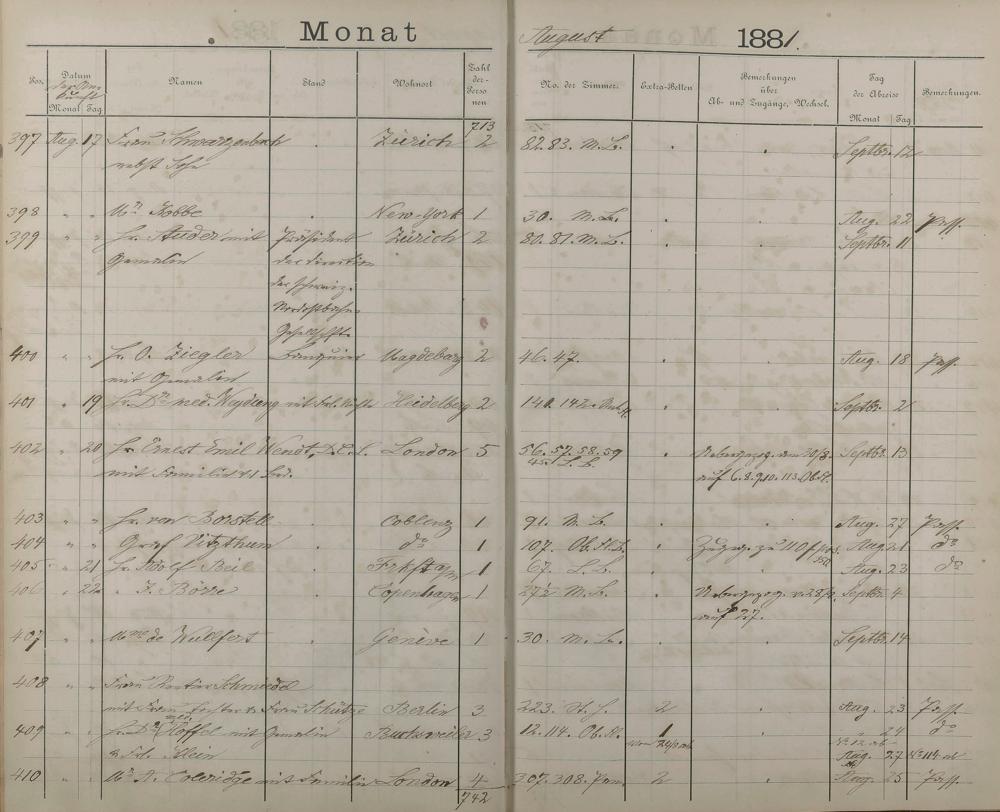 Monat August 1881.
Pos. Datum der Ankunft Monat Tag Namen Stand Wohnort Zahl der Personen No. der Zimmer. Extra-Betten Bemerkungen über Ab- und Zugänge, Wechsel. Tag der Abreise Monat Tag Bemerkungen.
713
397 Aug. 17 Frau Schwarzenbach Zürich 2 82. 83. M.B. Septbr. 12
nebst Sohn
398 " " Mr. New-York 1 30. M.B. Aug. 22 Pass.
399 " " Hr. Studer mit Präsident Zürich 2 80. 81. M.B. Septbr. 11
Gemalin der Direction
der schweiz.
Nordostbahn
Gesellschft.
400 " " Hr. O. Ziegler Banquier Magdeburg 2 46. 47. Aug. 18 Pass.
mit Gemalin
401 " 19 Hr. Dr. med. mit Heidelberg 2 140. 142. Septbr. 2
402 " 20 Hr. Ernest Emil Wendt, D.C.L. London 5 56. 57. 58. 59 Septbr. 13
45. L.B.
mit Familie & 1 Bed. auf 6. 8. 9. 10. 113. Ob. St.
403 " " Hr. von Borstell Coblenz 1 91. M.B. Aug. 27 Pass.
404 " " Graf Vitzthum do 1 107. Ob. St. B. Zuzug. zu 110 Aug. 21 do
405 " 21 Hr. Adolf Beil Frkft a/m 1 67. L.B. Aug. 23 do
406 " 22 " J. Börre Copenhagen 1 272 M.B. Uebergezog. Septbr. 4
auf 227.
407 " " Mme de Wulffert Genève 1 30. M.B. Septbr. 14
408 " " Frau Rector Schmiedel
mit Frau & Frau Schütze Berlin 3 223. 2 Aug. 23 Pass.
409 " " Hr. Dr. med. Höffel mit Gemalin Buchsweiler 3 12. 114. Ob. St. 1 " 24 do
No 12 ab
& Frl. Klein Aug. 27 No 114 ab
410 " " Mr. A. Coleridge mit Familie London 4 307. 308. 2 Aug. 25 Pass.
742